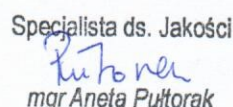 Specjalista ds. Jakości
mgr Aneta Pułtorak